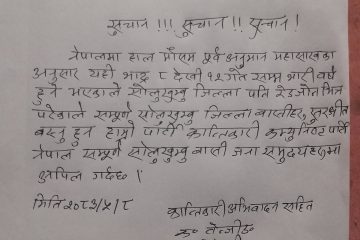 सुचना !!! सुचना !! सुचना !
नेपालमा हाल मौसम पूर्व अनुमान महाशाखका
अनुसार यही भाद्र ८ देखी १२ गते सम्म भारी वर्षा
हुने भएकोले सोलुखुम्बु जिल्ला पनि रेडजोन भित्र
परेकोले सम्पूर्ण सोलुखुम्बु जिल्ला बासीहरु सुरक्षीत
बस्नु हुन हाम्रो पार्टी क्रान्तिकारी कम्युनिष्ट पार्टी
नेपाल सम्पूर्ण सोलुखुम्बु बासी जन समुदायहरुमा
अपिल गर्दछ ।
मिति २०८३/५/८
क्रान्तिकारी अभिवादन सहित
क०